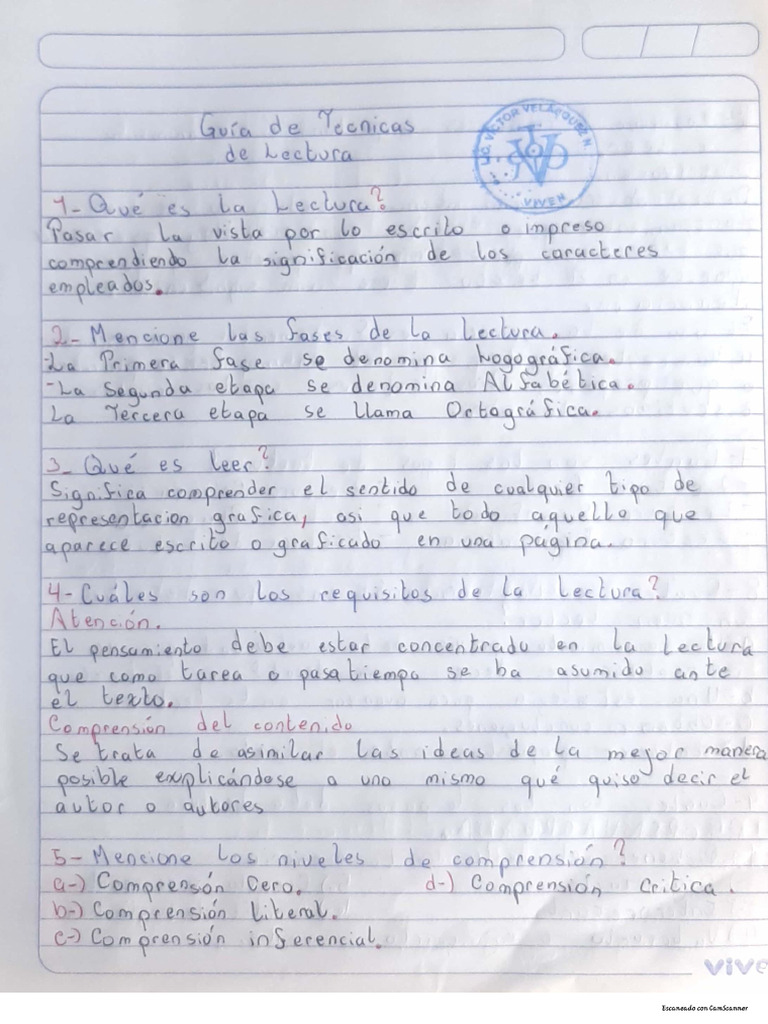 Guía de Tecnicas
de Lectura
LIC. VICTOR VELÁSQUEZ N.
VIVEN
1- Qué es la Lectura?
Pasar la vista por lo escrito o impreso
comprendiendo la significación de los caracteres
empleados.
2- Mencione las fases de la lectura.
-La Primera fase se denomina Logográfica.
-La Segunda etapa se denomina Alfabética.
La Tercera etapa se llama Ortográfica.
3- Qué es leer?
Significa comprender el sentido de cualquier tipo de
representacion grafica, asi que todo aquello que
aparece escrito o graficado en una página.
4- Cuáles son los requisitos de la Lectura?
Atención.
El pensamiento debe estar concentrado en la Lectura
que como tarea o pasatiempo se ha asumido ante
el texto.
Comprensión del contenido
Se trata de asimilar las ideas de la mejor manera
posible explicándose a uno mismo qué quiso decir el
autor o autores
5- Mencione los niveles de comprensión?
a-) Comprensón Cero. d-) Comprensión Critica.
b-) Comprensión Literal.
c-) Comprensión inferencial.
vive
Escaneado con CamScanner